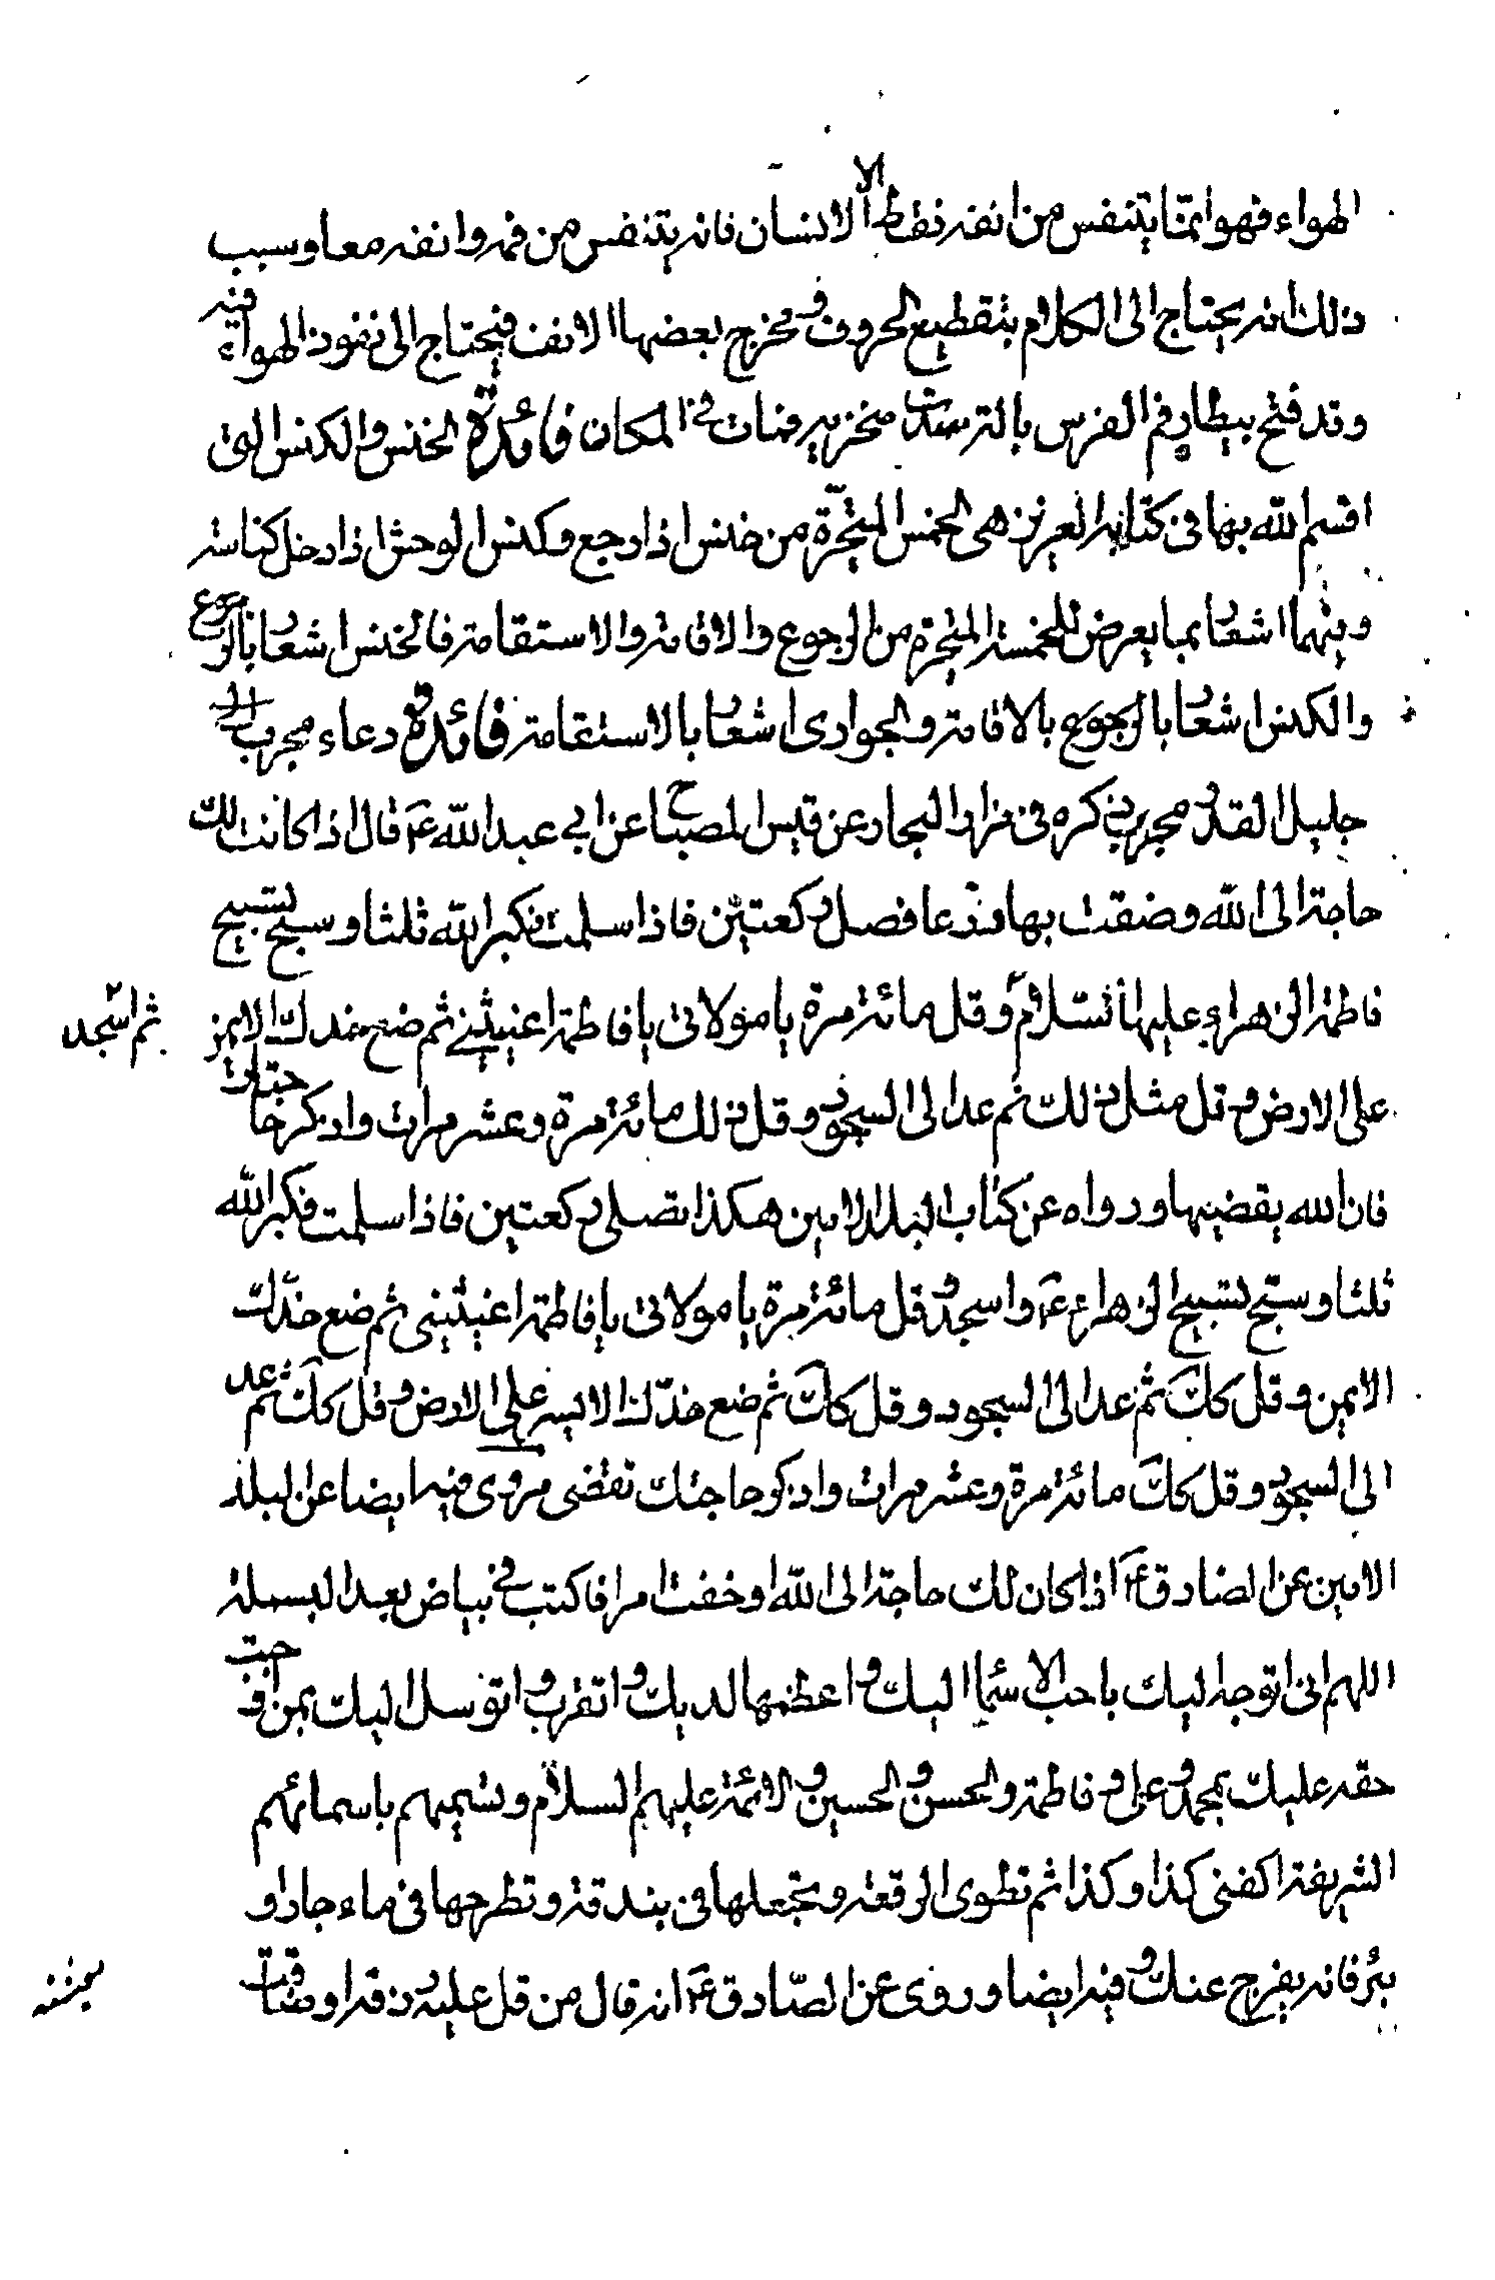 الهواء فهو انما يتنفس من انفه فقط الا الانسان فانه يتنفس من فمه وانفه معا وسبب
ذلك انه يحتاج الى الكلام بتقطيع الحروف ومخرج بعضها الانف فيحتاج الى نفوذ الهواء فيه
وقد فتح بيطار فم الفرس بالة سدت منخريه فمات في المكان فائدة الخنس والكنس التي
اقسم الله بها في كتابه العزيز هي الخمس المتحيّرة من خنس اذا رجع وكنس الوحش اذا دخل كناسه
وبينهما اشعار بما يعرض للخمسة المتحيرة من الرجوع والاقامة والاستقامة فالخنس اشعار بالرجوع
والكنس اشعار بالرجوع بالاقامة والجوارى اشعار بالاستقامة فائدة دعاء مجرب
جليل القدر مجرب ذكره في مزار البحار عن قبس المصباح عن ابي عبد الله ع قال اذا كانت لك
حاجة الى الله وضقت بها ذرعا فصل ركعتين فاذا سلمت فكبر الله ثلثا وسبح تسبيح
فاطمة الزهراء عليها السّلام وقل مائة مرة يا مولاتي يا فاطمة اغيثيني ثم ضع خدك الايمن
ثم اسجد
على الارض وقل مثل ذلك ثم عد الى السجود وقل ذلك مائة مرة وعشر مرات واذكر حاجتك
فان الله يقضيها ورواه عن كتاب البلد الامين هكذا تصلي ركعتين فاذا سلمت فكبر الله
ثلثا وسبّح تسبيح الزهراء ع واسجد وقل مائة مرة يا مولاتي يا فاطمة اغيثيني ثم ضع خدّك
الايمن وقل كك ثم عد الى السجود وقل كك ثم ضع خدّك الايسر على الارض وقل كك ثم عد
الى السجود وقل كك مائة مرة وعشر مرات واذكر حاجتك تقضى مروى فيه ايضا عن البلد
الامين عن الصادق ع اذا كان لك حاجة الى الله او خفت امرا فاكتب في بياض بعد البسملة
اللهم اني اتوجه اليك باحب الاسماء اليك واعظمها لديك واتقرب واتوسل اليك بمن اوجبت
حقه عليك بمحمد وعلي وفاطمة والحسن والحسين والائمة عليهم السلام وتسميهم باسمائهم
الشريفة اكفني كذا وكذا ثم تطوى الرقعة وتجعلها في بندقة وتطرحها في ماء جار او
بئر فانه يفرج عنك وفيه ايضا وروى عن الصّادق ع انه قال من قل عليه رزقه او ضاقت
معيشته